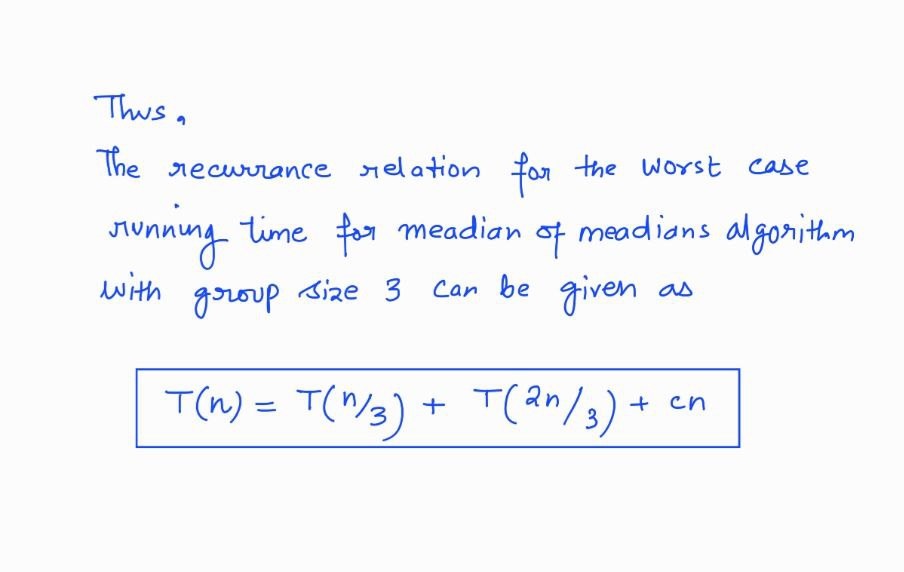 Thus,
The recurrance relation for the worst case
running time for meadian of meadians algorithm
with group size 3 can be given as
T(n) = T(n/3) + T(2n/3) + cn